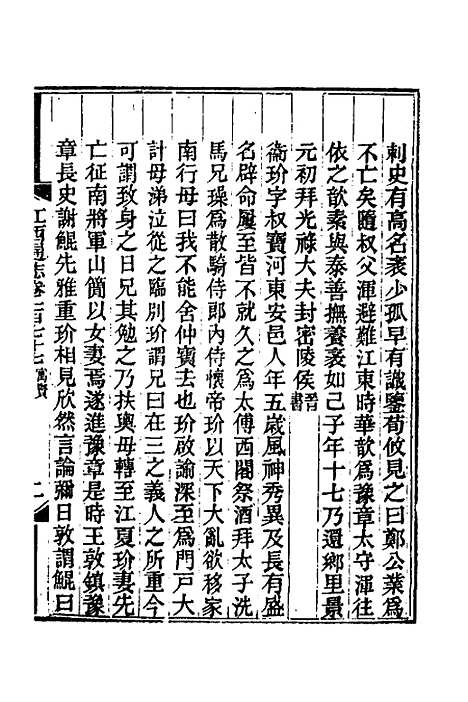 刺史有高名袤少孤早有識鑒荀攸見之曰鄭公業爲
不亡矣隨叔父渾避難江東時華歆爲豫章太守渾往
依之歆素與泰善撫養袤如己子年十七乃還鄉里景
元初拜光祿大夫封密陵侯晋書
衞玠字叔寶河東安邑人年五歲風神秀異及長有盛
名辟命屢至皆不就久之爲太傅西閣祭酒拜太子洗
馬兄璪爲散騎侍郎內侍懷帝玠以天下大亂欲移家
南行母曰我不能舍仲寶去也玠啟諭深至爲門戸大
計母涕泣從之臨別玠謂兄曰在三之義人之所重今
可謂致身之日兄其勉之乃扶輿母轉至江夏玠妻先
亡征南將軍山簡以女妻焉遂進豫章是時王敦鎮豫
章長史謝鯤先雅重玠相見欣然言論彌日敦謂鯤曰
江西通志卷一百七十七寓賢
二